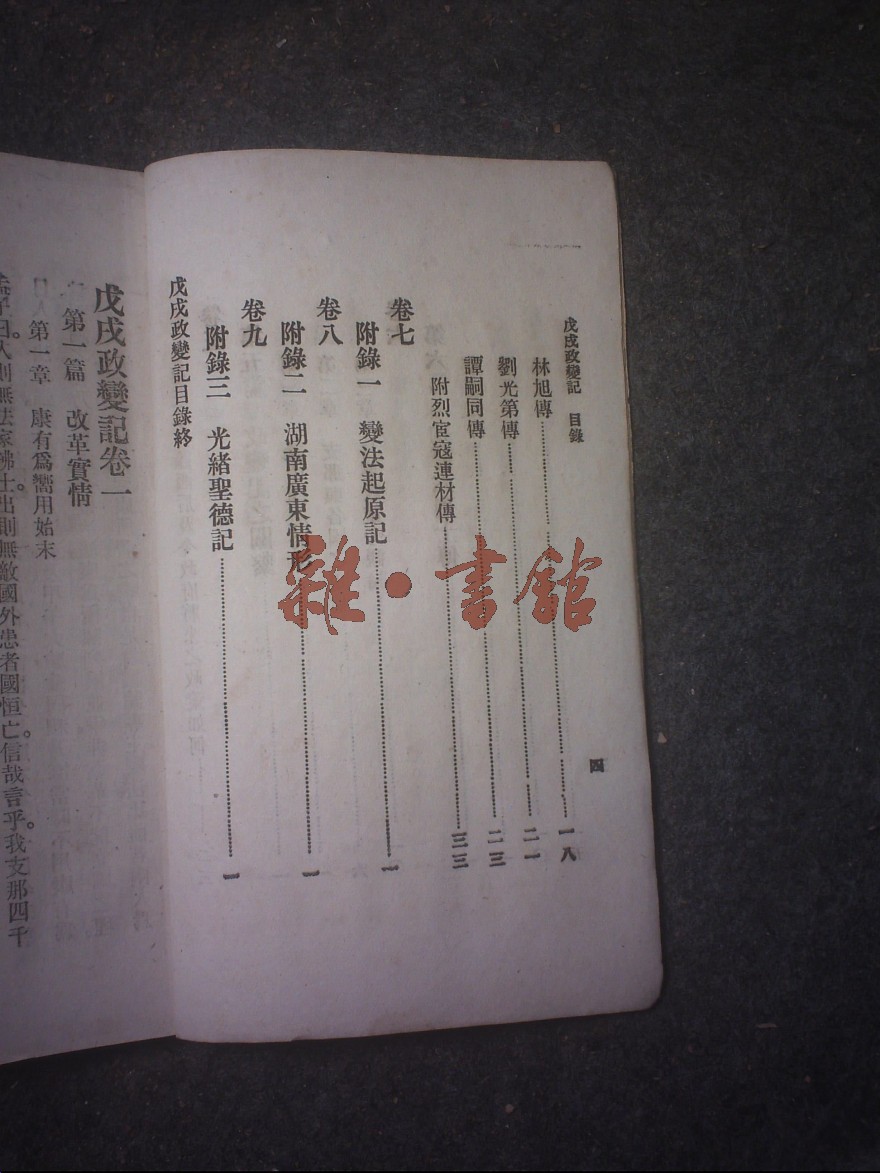 戊戌政變記 目錄 四
林旭傳 一八
劉光第傳 二一
譚嗣同傳 二三
附烈宦寇連材傳 三三
卷七
附錄一 變法起原記 一
卷八
附錄二 湖南廣東情形 一
卷九
附錄三 光緒聖德記 一
戊戌政變記目錄終
戊戌政變記卷一
第一篇 改革實情
第一章 康有爲嚮用始末
孟子曰。入則無法家拂士。出則無敵國外患者國恒亡。信哉言乎。我支那四千
雜·書館